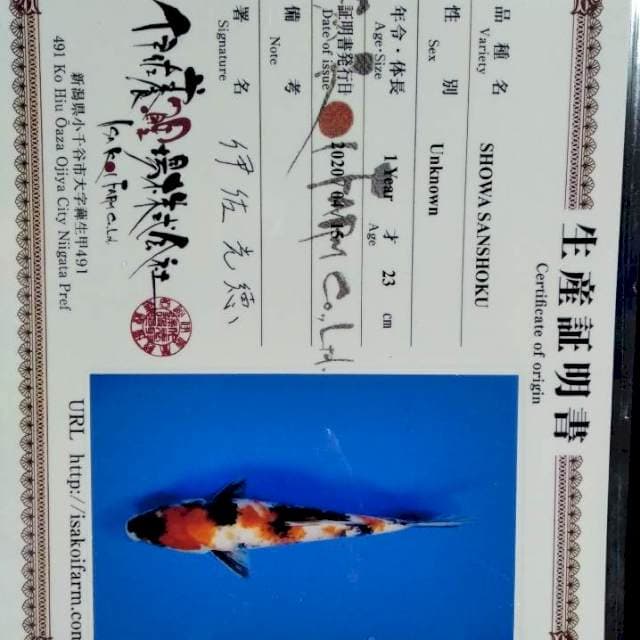 生産証明書
Certificate of origin
品種名 SHOWA SANSHOKU
Variety
性別 Unknown
Sex
年令・体長 1 Year 才 23 cm
Age·Size Age
証明書発行日 2020
Date of issue
Co., Ltd.
備考
Note
署名
Signature
伊佐光徳
株式会社
Isa Koi Farm Co., Ltd.
新潟県小千谷市大字薭生甲491
491 Ko Hiu Ōaza Ojiya City Niigata Pref
URL http://isakoifarm.com